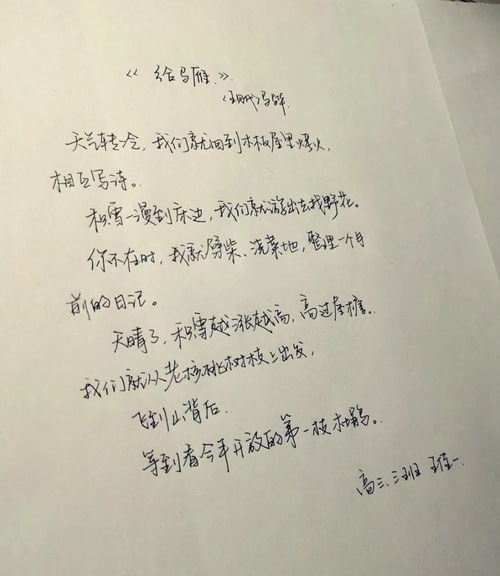 《给马雁》
天气转冷,我们就回到木板屋里烤火,
相互写诗。
积雪一漫到床边,我们就游出去找野花。
你不在时,我就劈柴、浇菜地,整理一个月
前的日记。
天晴了,积雪越涨越高,高过屋檐。
我们就从老核桃树枝上出发,
飞到山背后,
等到看今年开放的第一枝杜鹃。
高三.三班